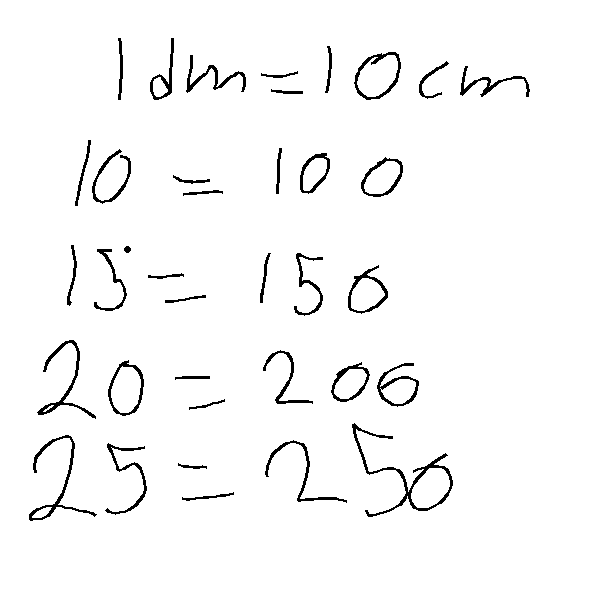 1dm=10cm
10 = 100
15 = 150
20 = 200
25 = 250